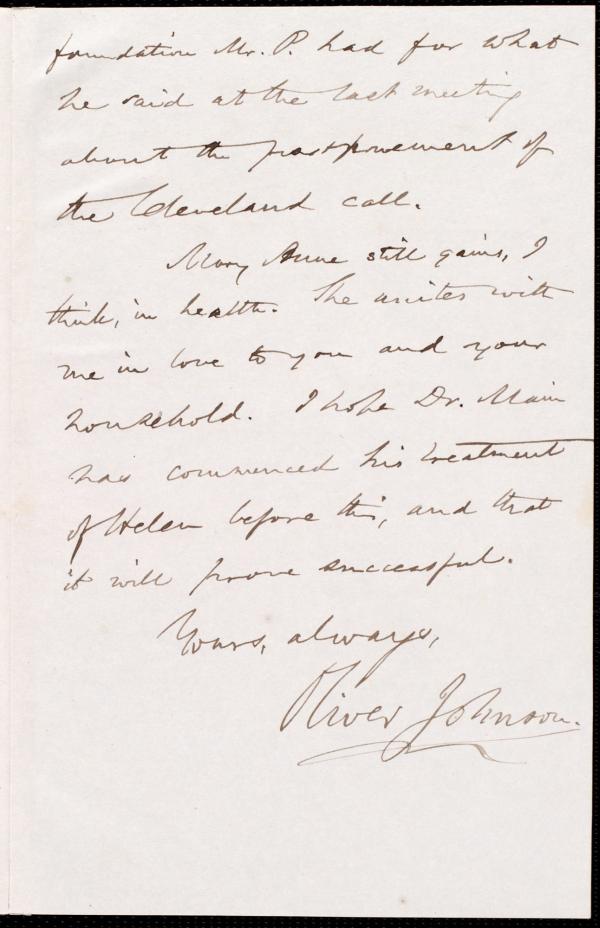 foundation Mr. P. had for what
he said at the last meeting
about the postponement of
the Cleveland call.
Mary Anne still gains, I
think, in health. She unites with
me in love to you and your
household. I hope Dr. Main
has commenced his treatment
of Helen before this, and that
it will prove successful.
Yours, always,
Oliver Johnson.